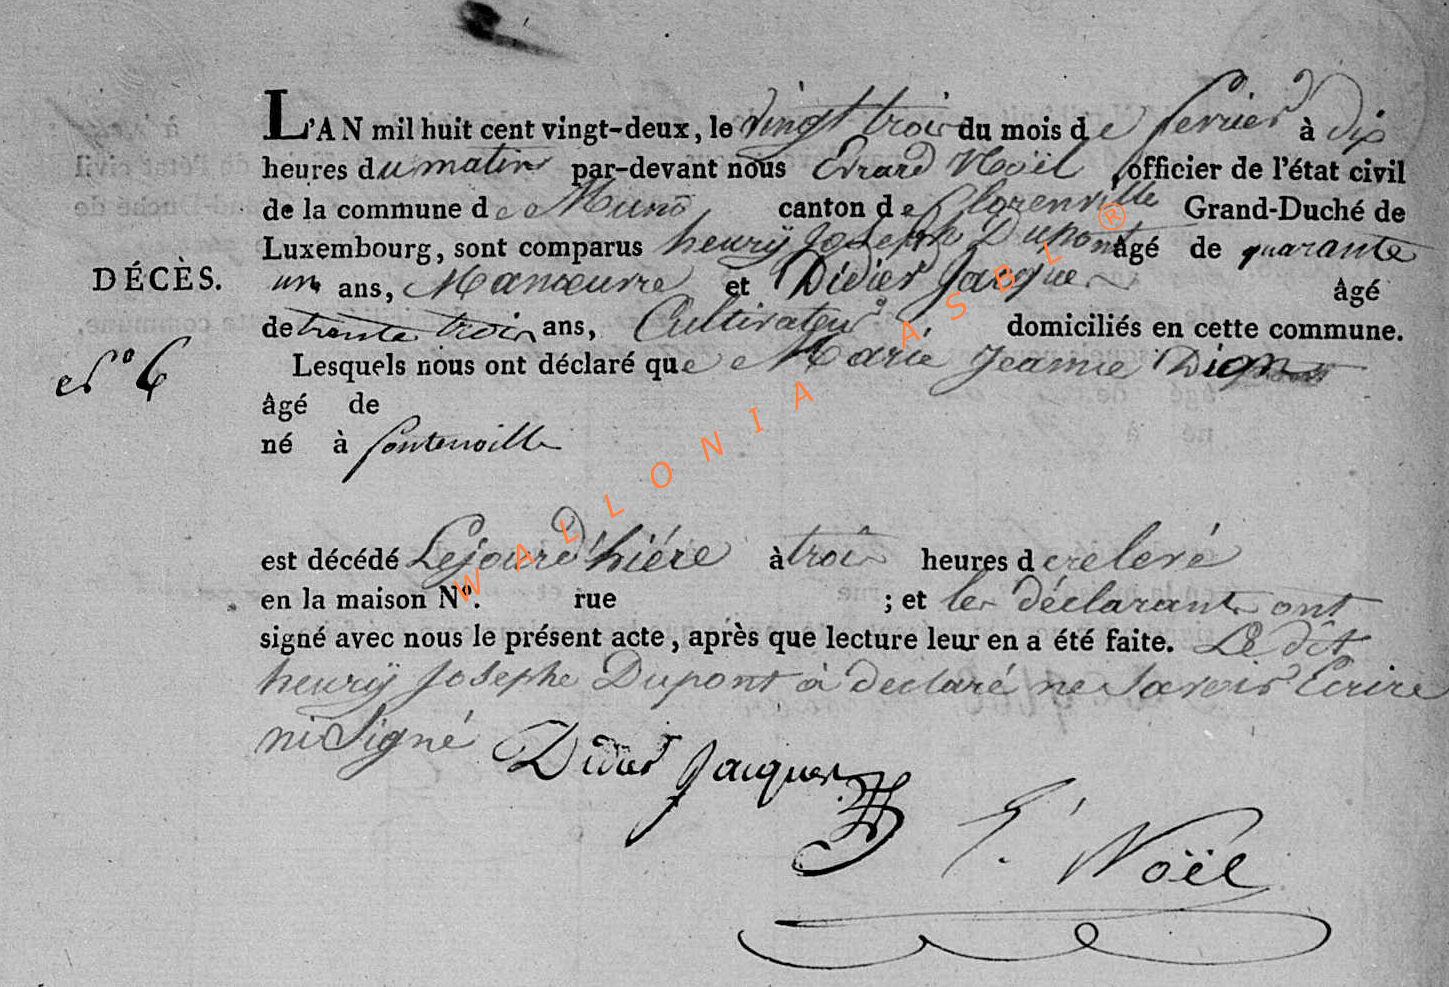 L'AN mil huit cent vingt-deux, le vingt trois du mois de fevrier à dix
heures du matin par-devant nous Evrard Noël, officier de l'état civil
de la commune de Muno canton de Florenville Grand-Duché de
Luxembourg, sont comparus henrÿ Joseph Dupont âgé de quarante
DÉCÈS.
un ans, Manœuvre et Didier Jacque âgé
de trente trois ans, Cultivateur domiciliés en cette commune.
Lesquels nous ont déclaré que Marie Jeanne Dign
No 6
âgé de
né à fontenoille
est décédé Lejourd'hiére à trois heures de relevé
en la maison No. rue ; et les déclarants ont
signé avec nous le présent acte, après que lecture leur en a été faite. Le dit
henrÿ Josephe Dupont à declaré ne Savoir Ecrire
ni Signé Didier Jacques
E. Noël
WALLONIA ASBL ®